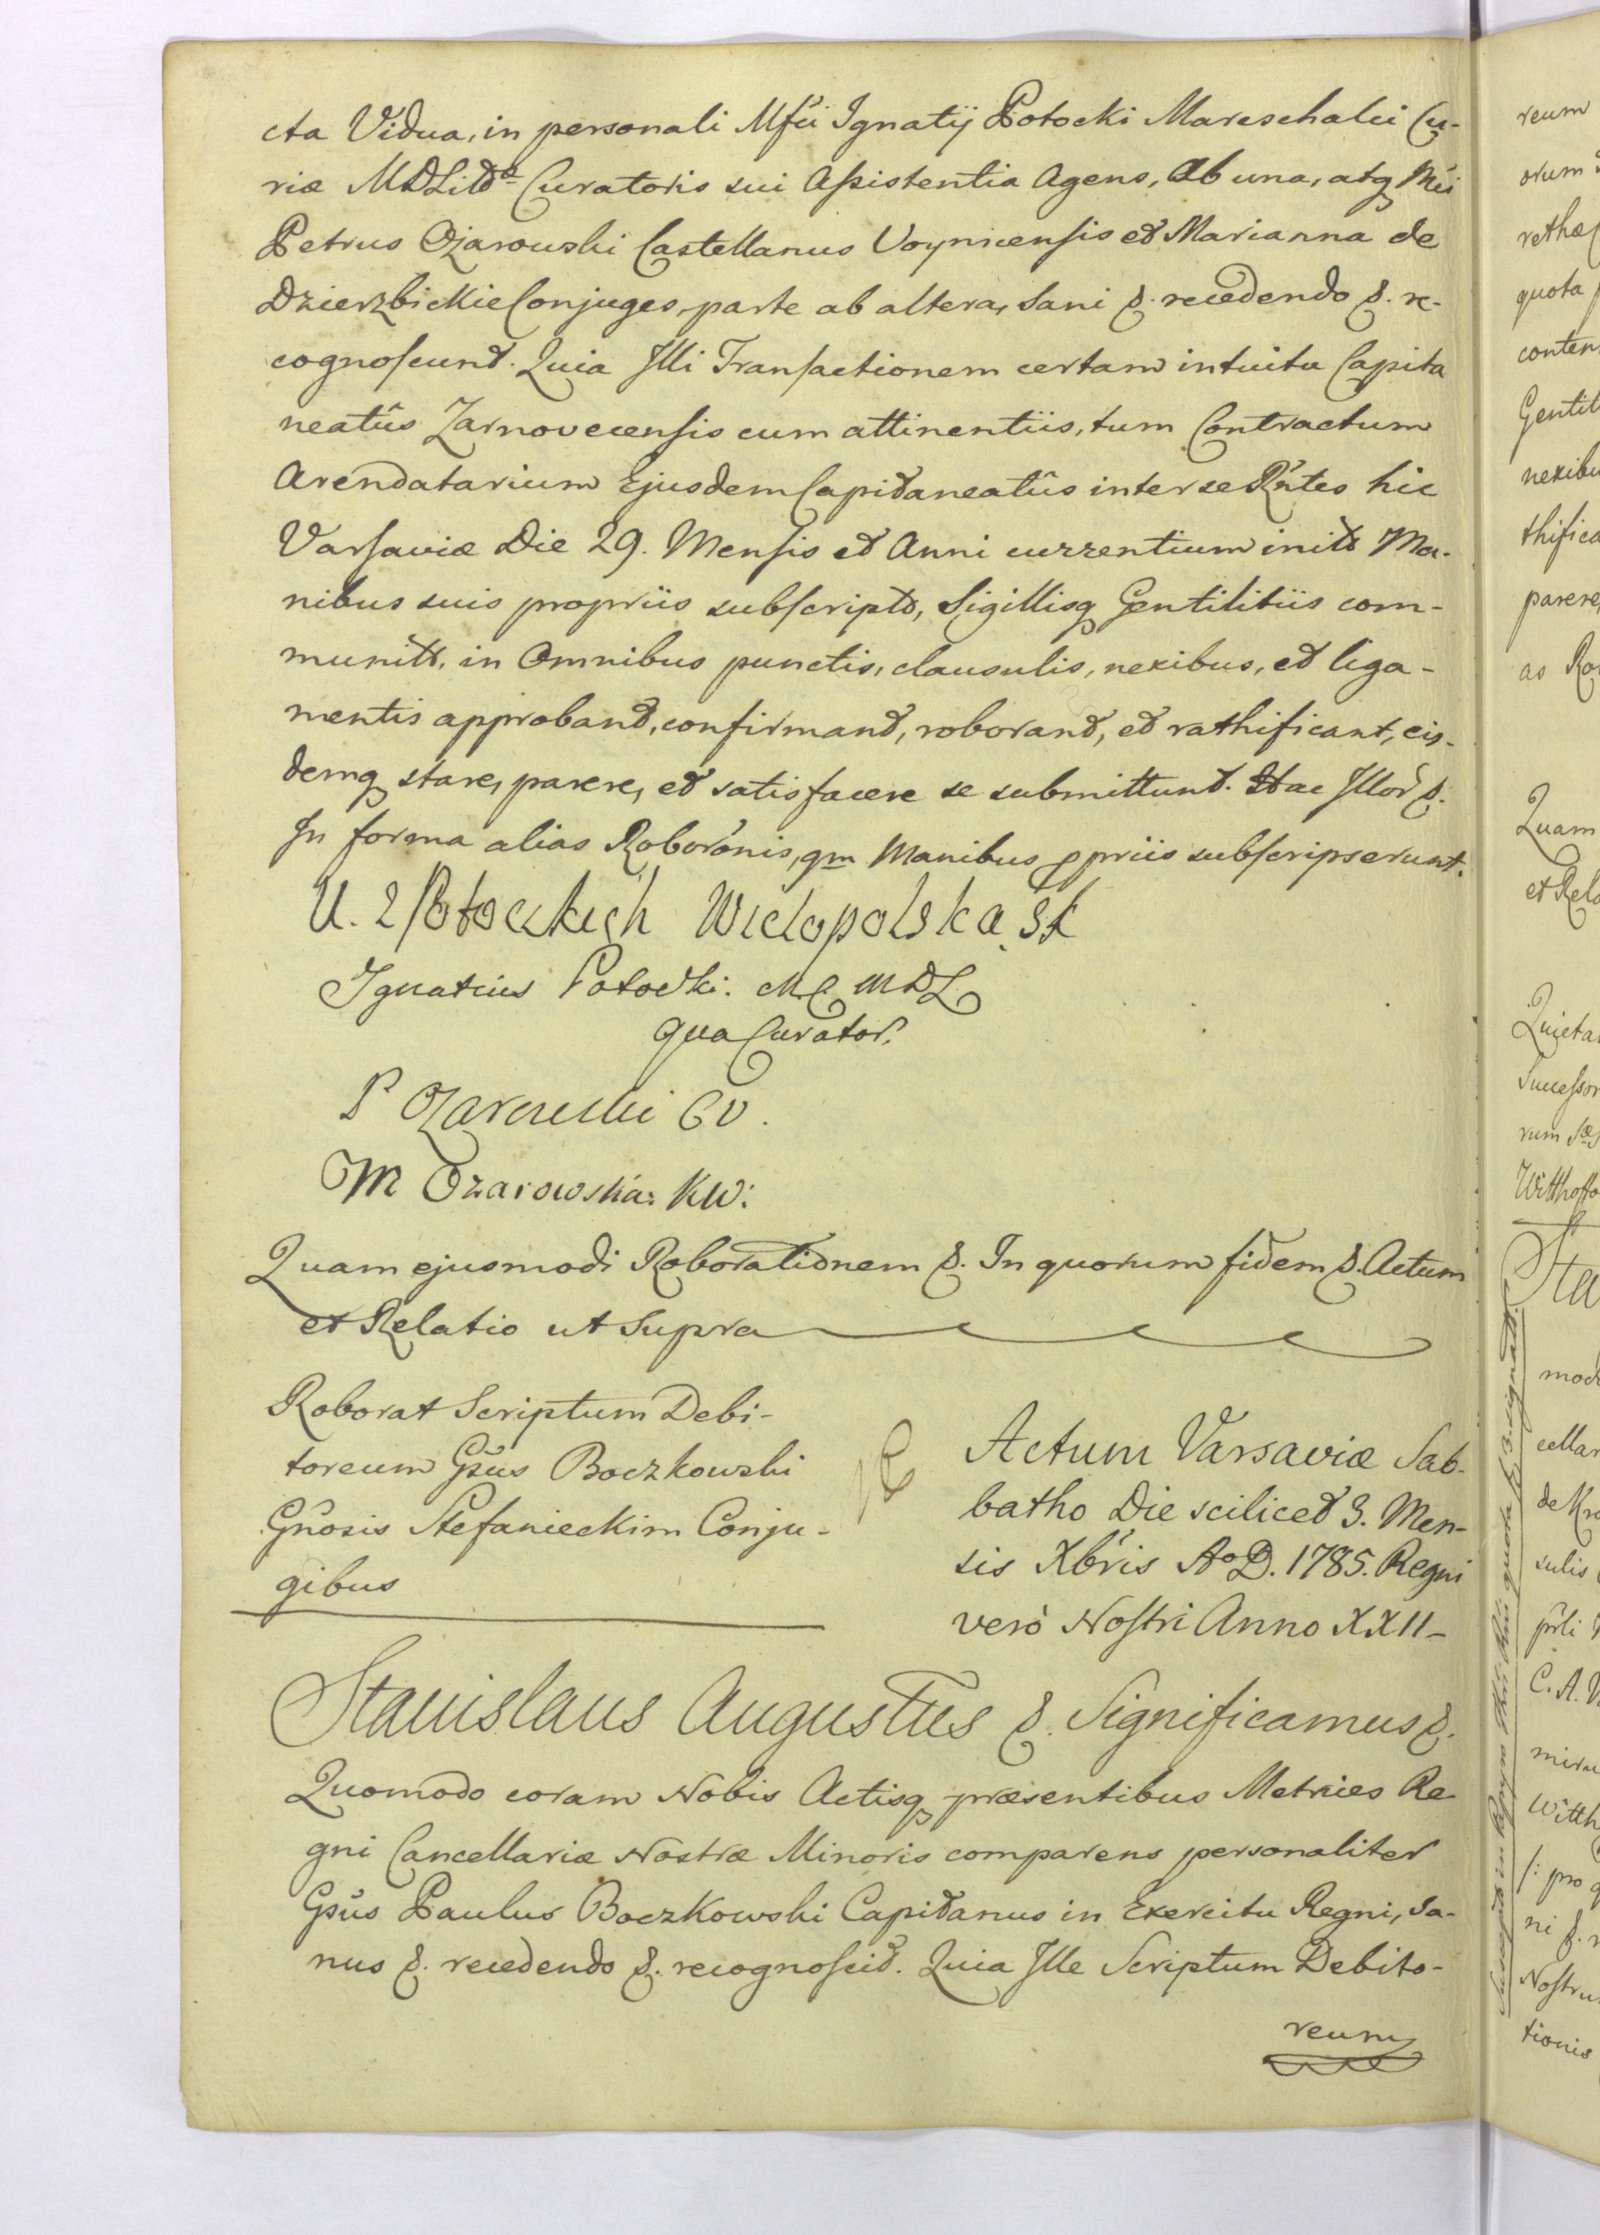 cta Vidua, in personali Mfci Ignatij Potocki Mareschalci Cu-
riæ MDLittæ Curatoris sui Assistentia Agens, Ab una, atq Mci
Petrus Ożarowski Castellanus Voynicensis et Marianna de
Dzierzbickie Conjuges, parte ab altera, Sani &. recedendo &. re-
cognoscunt. Quia Illi Transactionem certam intuitu Capita
neatûs Zarnovecensis cum attinentiis, tum Contractum
Arendatarium Ejusdem Capitaneatûs inter se Rñtes hic
Varsaviæ Die 29. Mensis et Anni currentium initt Ma-
nibus suis propriis subscript, Sigillisq Gentilitiis com-
munitt, in Omnibus punctis, clausulis, nexibus, et liga-
mentis approbant, confirmant, roborant, et rathificant, eis-
demq stare, parere, et satisfacere se submittunt. Hac Illor &.
In forma alias Roborõnis, qm Manibus ppriis subscripserunt.
U. z Potoczkich Wielopolska SK
Ignatius Potocki. M C MDL
qua Curator.
P Ożarowski CV.
M Ożarowska: KW:
Quam ejusmodi Roborationem &. In quorum fidem &. Actum
et Relatio ut Supra
Roborat Scriptum Debi-
toreum Gsus Boczkowski
Gñosis Stefanieckim Conju-
gibus
Actum Varsaviæ Sab-
batho Die scilicet 3. Men-
sis Xbris Ao D. 1785. Regni
verò Nostri Anno XXII-
Stanislaus Augustus &. Significamus &.
Quomodo coram Nobis Actisq præsentibus Metrices Re-
gni Cancellariæ Nostræ Minoris comparens personaliter
Gsus Paulus Boczkowski Capitanus in Exercitu Regni, Sa-
nus &. recedendo &. recognoscit. Quia Ille Scriptum Debito-
reum
reum
orum
rethæ
quota
conten
Gentil
nexibu
thifica
parere,
as Ro
Quam
et Rela
Quieta
Successor
rum
Witthoffo
Sta
mod
cellar
de Kro
sulis
C. A. V
Witth
/: pro q
ni &.
Nostru
tionis